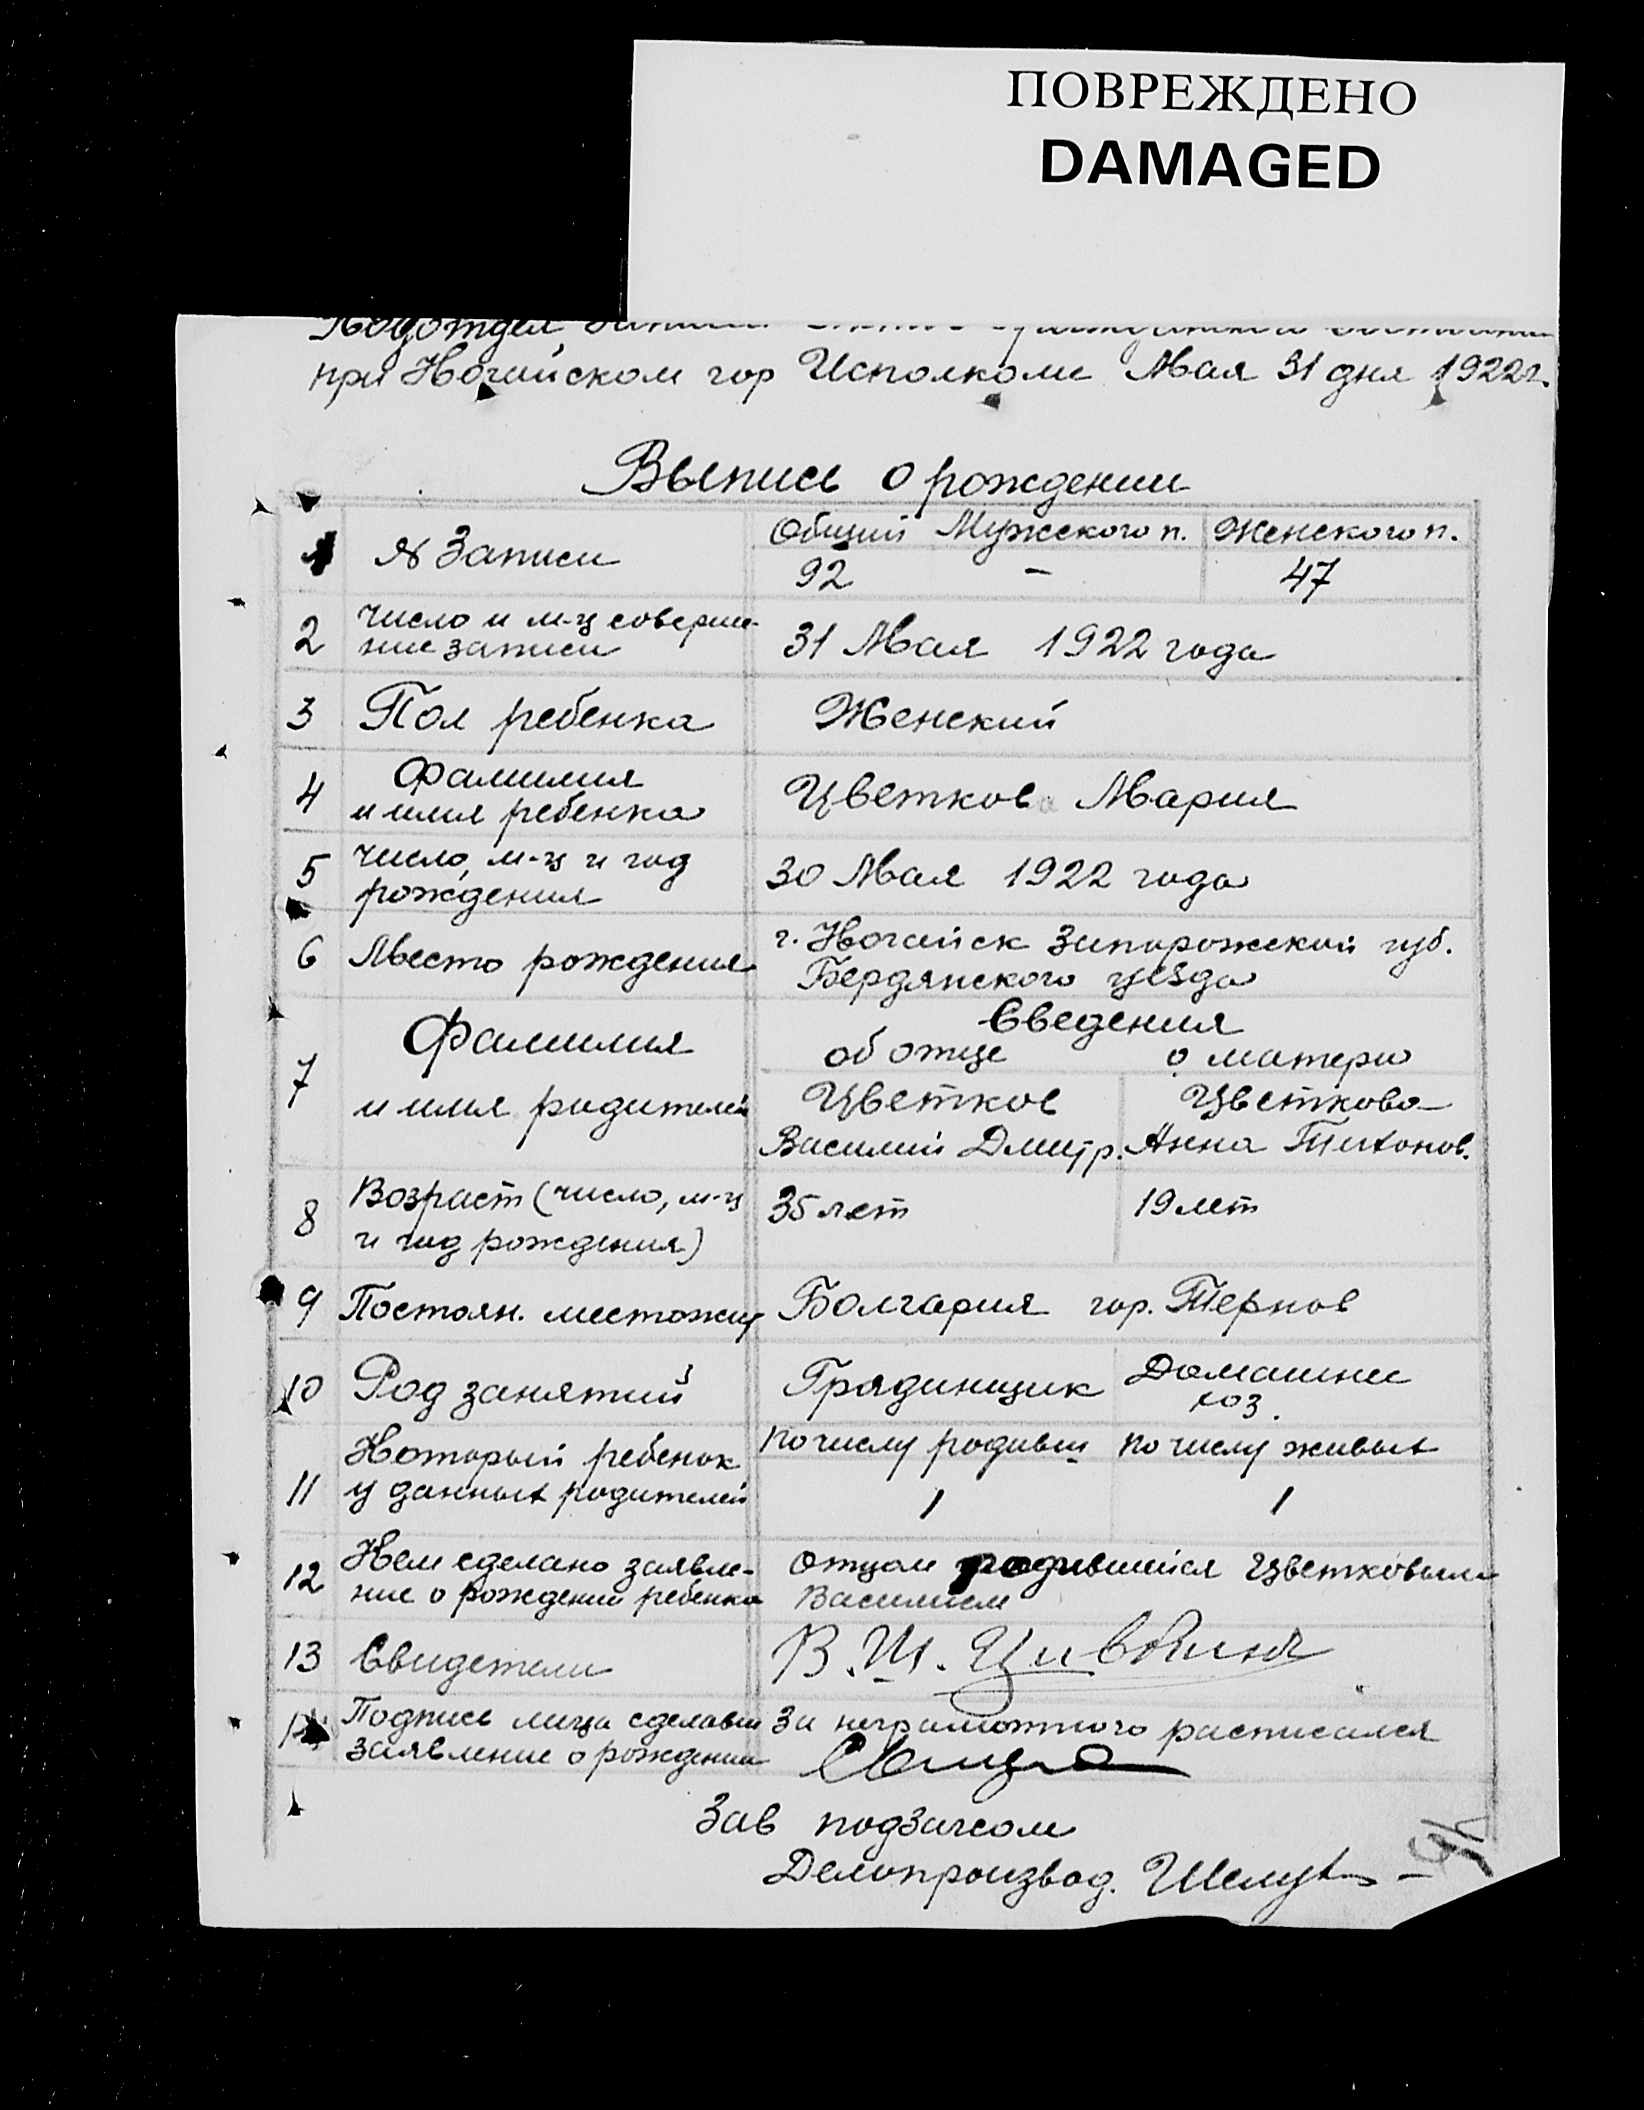 ПОВРЕЖДЕНО
DAMAGED
Подотдел Записи Актов Гражданского Состояния
при Ногайском гор Исполкоме Мая 31 дня 1922 г.
Выпись о рождении
1 № Записи Общий Мужского п. Женского п.
92 - 47
2 Число и м-ц соверше-
ние записи 31 Мая 1922 года
3 Пол ребенка Женский
4 Фамилия
и имя ребенка Цветкова Мария
5 Число, м-ц и год
рождения 30 Мая 1922 года
6 Место рождения г. Ногайск Запорожской губ.
Бердянского уезда
7 Фамилия
и имя родителей Сведения
об отце о матери
Цветков Цветкова
Василий Дмитр. Анна Тихонов.
8 Возраст (число, м-ц
и год рождения) 35 лет 19 лет
9 Постоян. местожит Болгария гор. Тернов
10 Род занятий Градинщик Домашнее
хоз.
11 Который ребенок
у данных родителей по числу родивш по числу живых
1 1
12 Кем сделано заявле-
ние о рождении ребенка отцом родившийся Цветковым
Василием
13 Свидетели В. Ш.
14 Подпись лица сделавш
заявление о рождении За неграмотного расписался
Зав подзагсом
Делопроизвод.